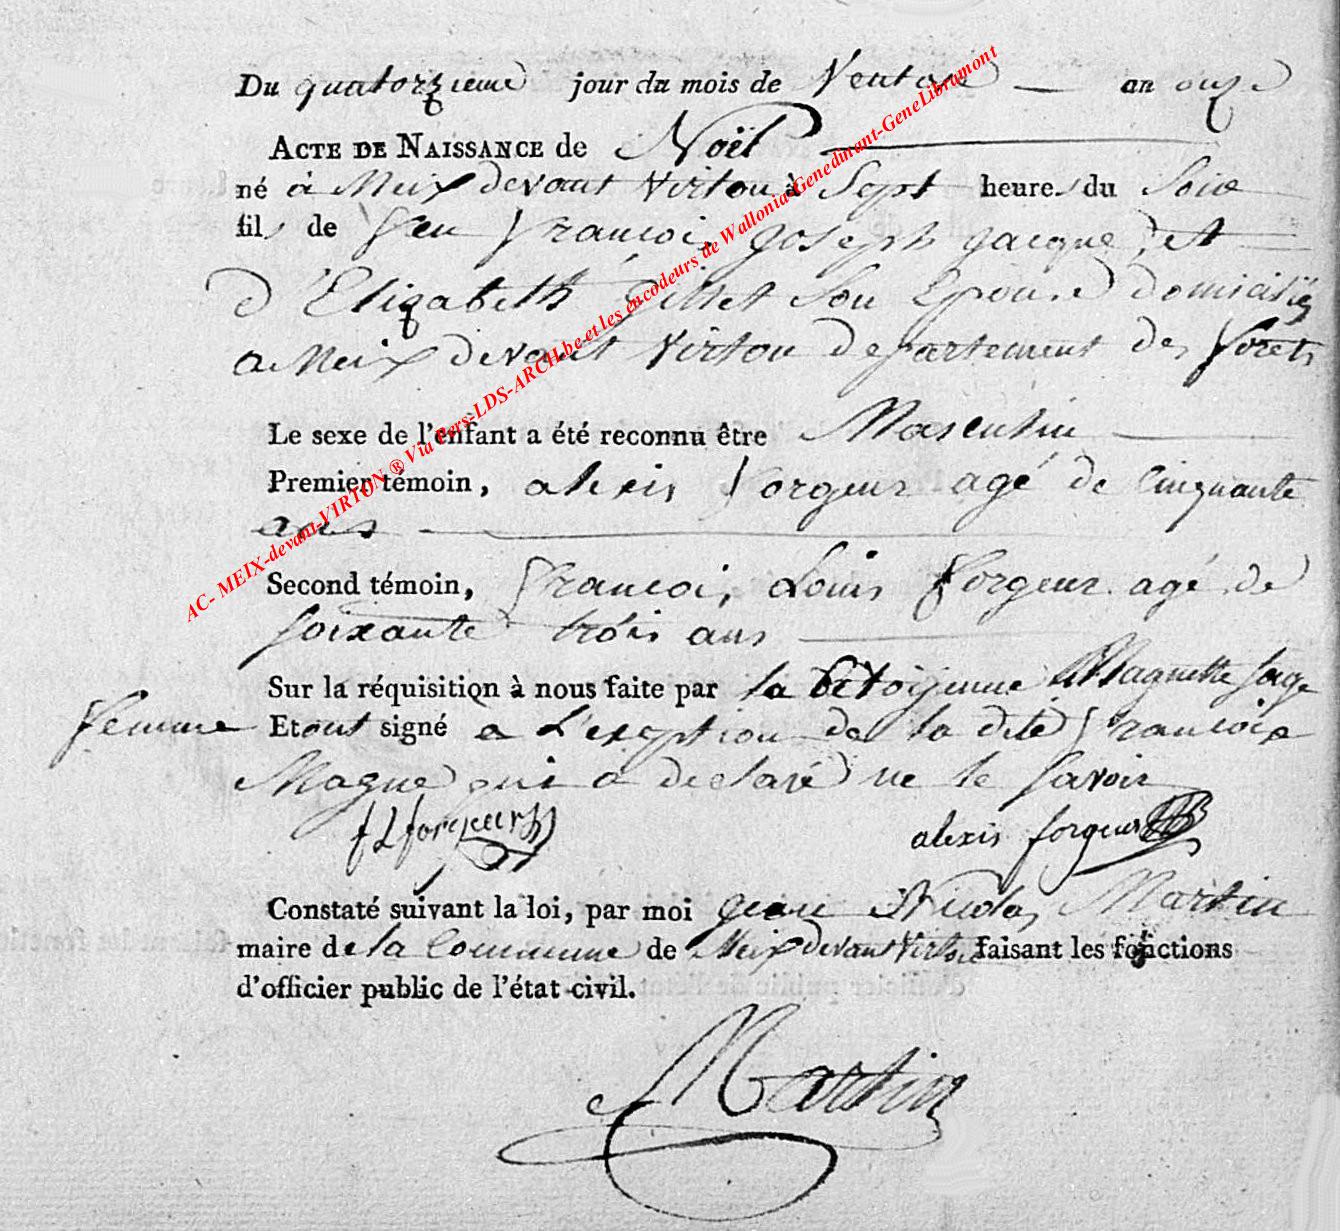 Du quatorzieme jour du mois de Ventose an onze
ACTE DE NAISSANCE de Noël
né à Meix devant Virton à Sept heures du Soir
fils de feu francois joseph jacque et
d'Elizabeth Gillet Son Epouse domiciliés
a Meix devant Virton departement des forets
Le sexe de l'enfant a été reconnu être Masculin
Premier témoin, alexis forgeur agé de Cinquante
ans
Second témoin, francois Louis forgeur agé de
soixante trois ans
Sur la réquisition à nous faite par la Citoyenne Maguette sage
femme Et ont signé a L'exeption de la dite francoise
Magne qui a declaré ne le savoir
f L forgeur alexis forgeur
Constaté suivant la loi, par moi jean Nicolas Martin
maire de la Commune de Meix devant Virton faisant les fonctions
d'officier public de l'état civil.
Martin
AC- MEIX-devant-VIRTON ® Via Pers-LDS-ARCH.be et les encodeurs de Wallonia-Genedinant-GeneLibramont